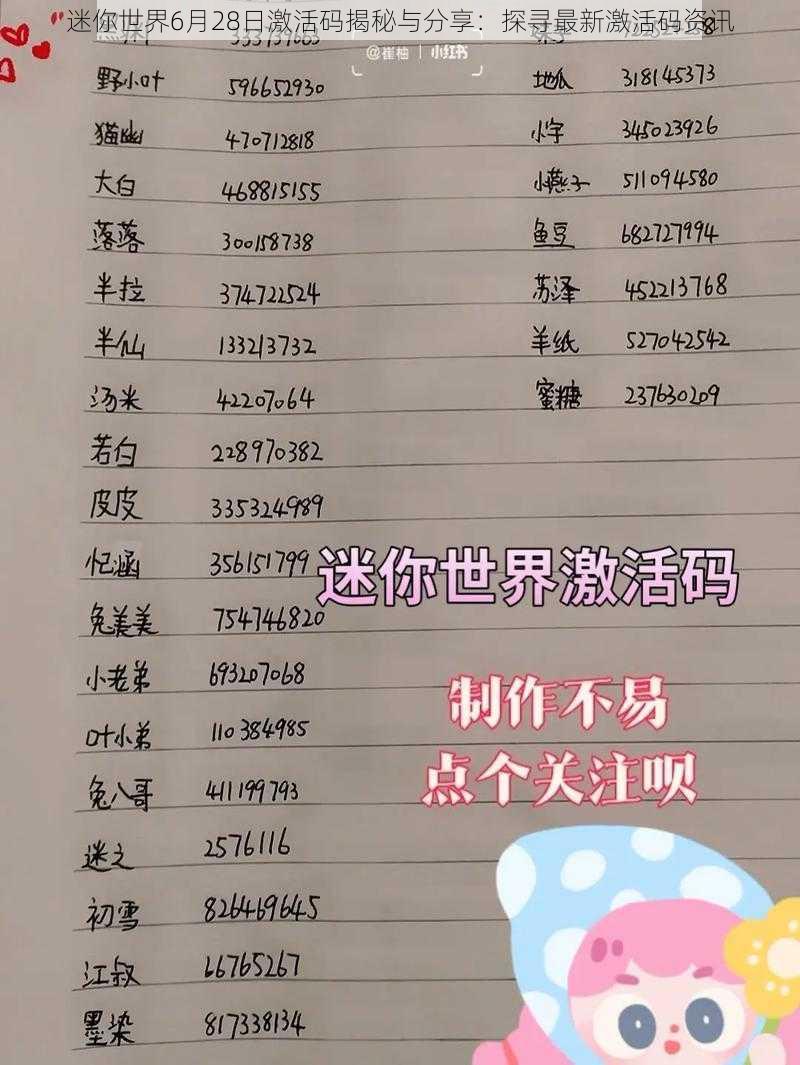 迷你世界6月28日激活码揭秘与分享：探寻最新激活码资讯
@崔柚 | 小红书
野小叶 596652930
地瓜 318145373
猫幽 470712818
小字 345023926
大白 468815155
小燕子 511094580
落落 300158738
鱼豆 682727994
半拉 374722524
苏泽 452213768
半仙 133213732
羊纸 527042542
汤米 42207064
蜜糖 237630209
若白 228970382
皮皮 335324989
忆涵 356151799
迷你世界激活码
兔美美 754746820
小老弟 693207068
制作不易
叶小弟 110384985
点个关注呗
兔八哥 411199793
迷之 2576116
初雪 826469645
江叔 66765267
墨染 817338134